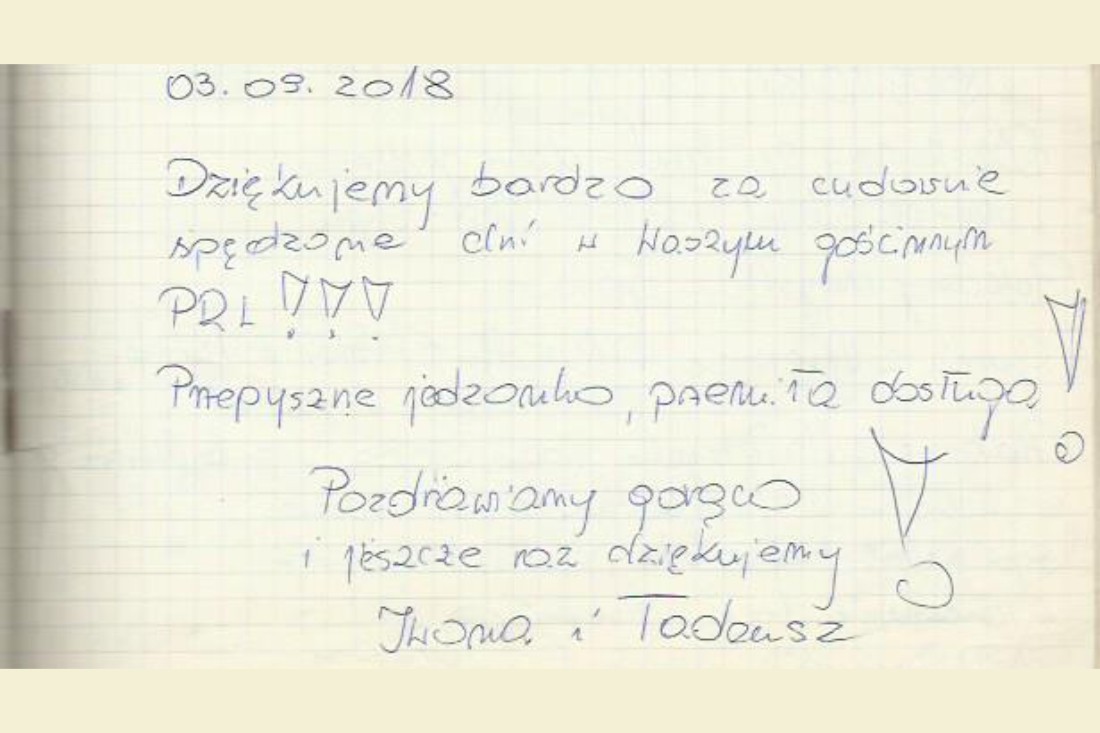 03.09.2018
Dziękujemy bardzo za cudownie
spędzone dni w Waszym gościnnym
PRL !!!
Przepyszne jedzonko, przemiła obsługa !
Pozdrawiamy gorąco !
i jeszcze raz dziękujemy
Iwona i Tadeusz